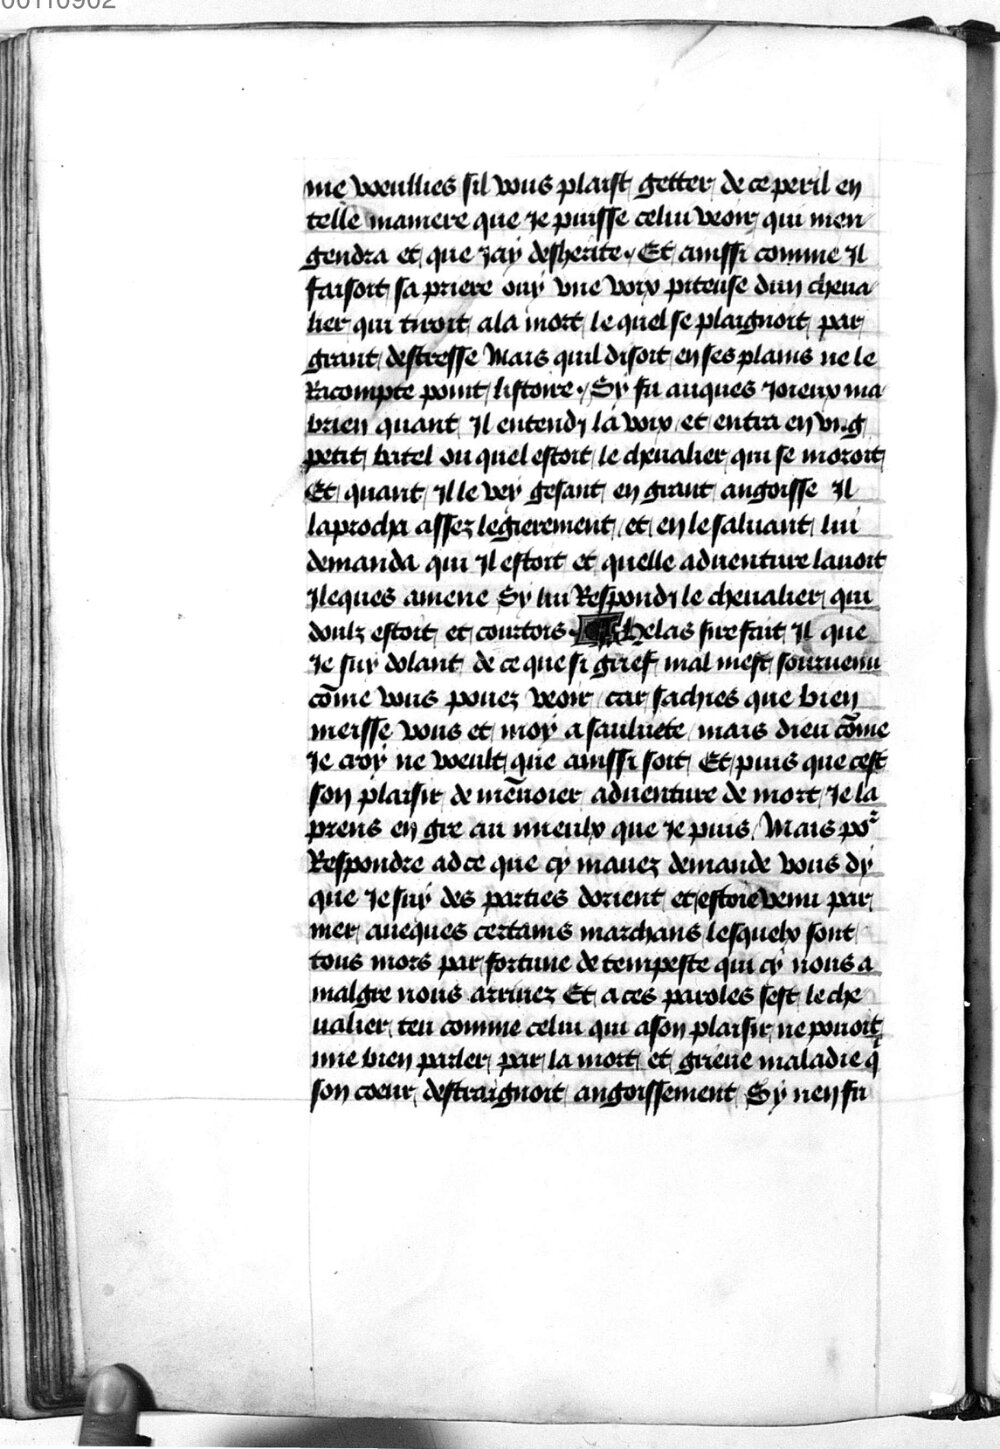 00110902
me voeullies sil vous plaist getter de ce peril en
telle maniere que Je puisse celui veoir qui men
gendra et que Jay desherite. Et ainssi comme Il
faisoit sa priere ouy vne voix piteuse dun cheua
lier qui tiroit a la mort le quel se plaignoit par
grant destresse Mais quil disoit en ses plains ne le
Racompte point listoire. Sy fu auques Joieux ma
brien quant Il entendy la voix et entra en vng
petit batel ou quel estoit le cheualier qui se moroit
Et quant Il le vey gesant en grant angoisse Il
laprocha assez legierement et en le saluant lui
demanda qui Il estoit et quelle aduenture lauoit
Ileques amene Sy lui Respondy le cheualier qui
doulz estoit et courtois. Ahelas sire fait Il que
Je suy dolant de ce que si grief mal mest souruenu
cōme vous pouez veoir car sachies que bien
meisse vous et moy a sauluete mais dieu cōme
Je croy ne voeult que ainssi soit Et puis que cest
son plaisir de mēuoier aduenture de mort Je la
prens en gre au mieulx que Je puis Mais por
Respondre ad ce que cy mauez demande vous dy
que Je suy des parties dorient et estoie venu par
mer aueques certains marchans lesquelx sont
tous mors par fortune de tempeste qui cy nous a
malgre nous arriuez Et a ces paroles sest le che
ualier teu comme celui qui a son plaisir ne pouoit
mie bien parler par la mort et grieue maladie q̄
son coeur destraignoit angoissement Sy nen fu